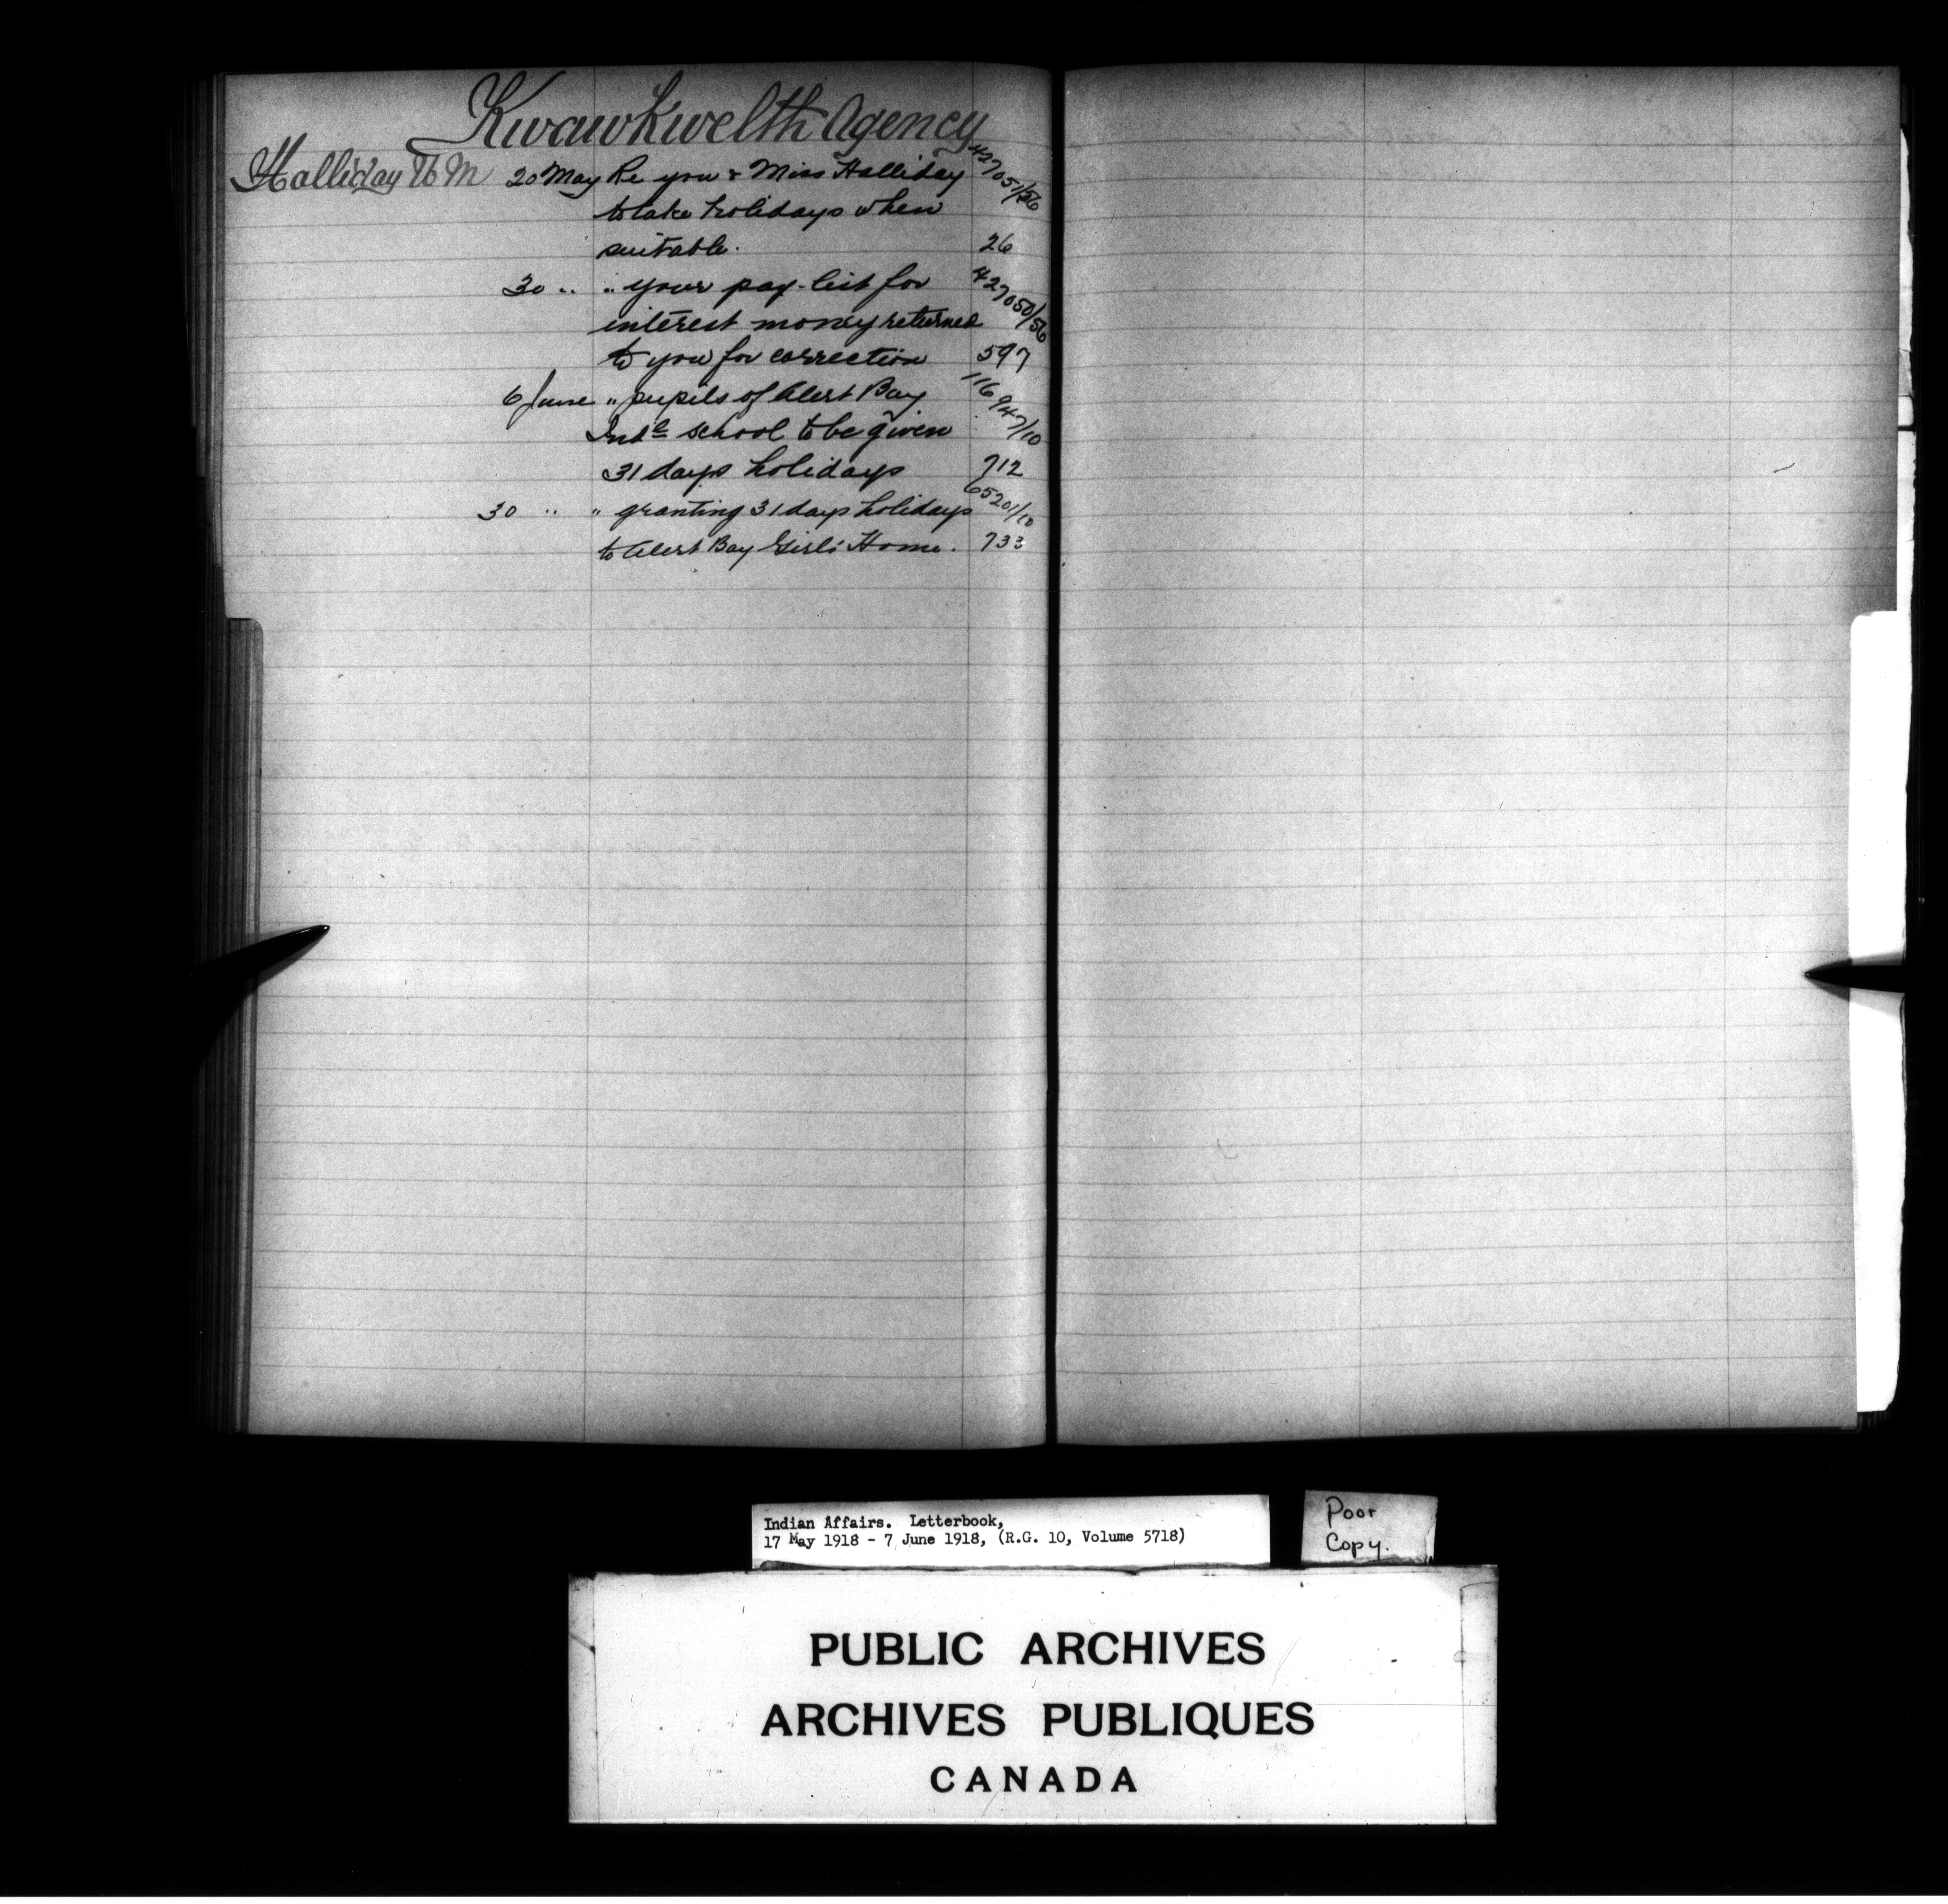 Kwawkwelth Agency
Halliday W M 20 May Re you & Miss Halliday 427051/56
to take holidays when
suitable. 26
30 " " your pay-list for 427050/56
interest money returned
to you for correction 597
6 June " pupils of Alert Bay 116947/10
Indl school to be given
31 days holidays 712
30 " " granting 31 days holidays 65201/10
to Alert Bay Girls' Home. 733
Indian Affairs. Letterbook,
17 May 1918 - 7 June 1918, (R.G. 10, Volume 5718)
Poor
Copy.
PUBLIC ARCHIVES
ARCHIVES PUBLIQUES
CANADA